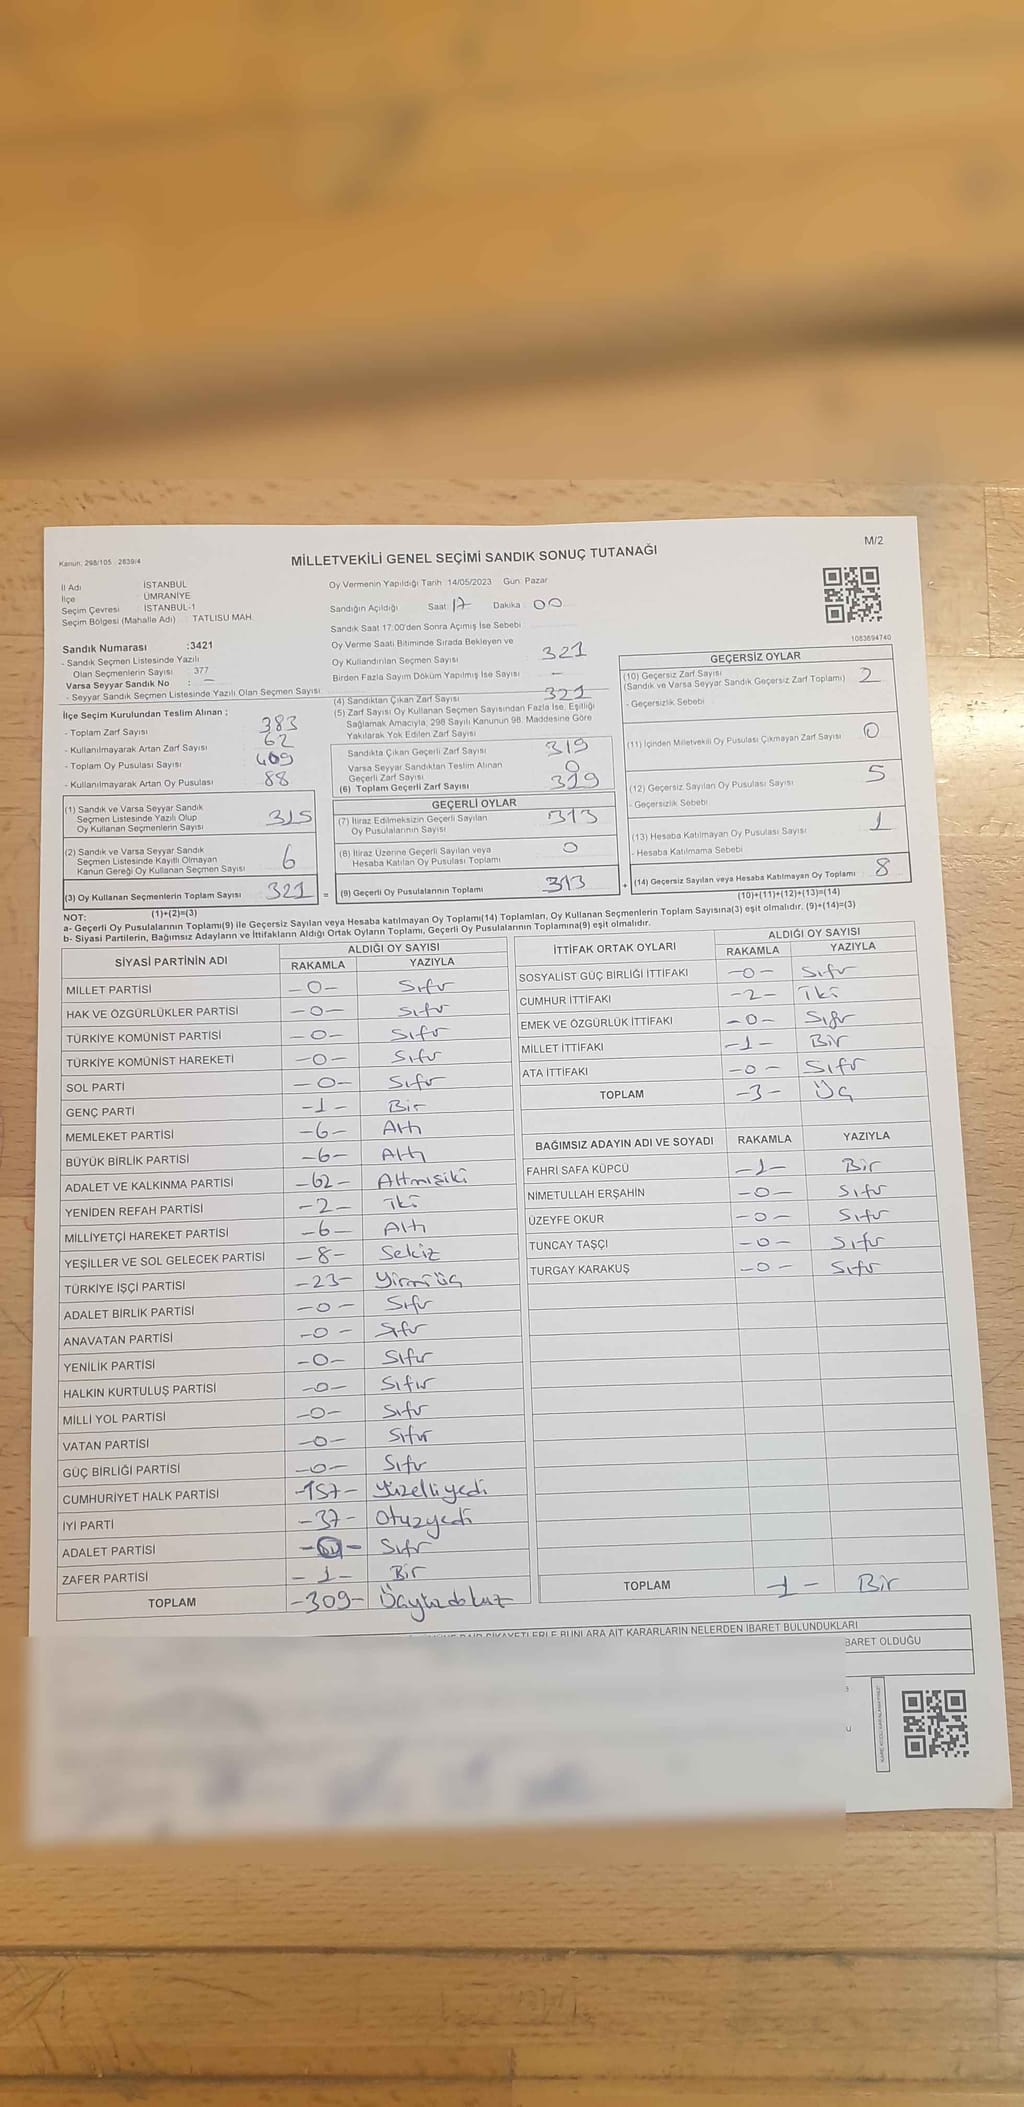 M/2
Kanun, 298/105 2839/4
MİLLETVEKİLİ GENEL SEÇİMİ SANDIK SONUÇ TUTANAĞI
İl Adı İSTANBUL
İlçe ÜMRANİYE
Seçim Çevresi İSTANBUL-1
Seçim Bölgesi (Mahalle Adı) TATLISU MAH.
Oy Vermenin Yapıldığı Tarih :14/05/2023 Gün: Pazar
Sandığın Açıldığı Saat 17 Dakika 00
Sandık Saat 17:00'den Sonra Açımış İse Sebebi
Sandık Numarası :3421
- Sandık Seçmen Listesinde Yazılı
Olan Seçmenlerin Sayısı 377
Varsa Seyyar Sandık No : —
- Seyyar Sandık Seçmen Listesinde Yazılı Olan Seçmen Sayısı
Oy Verme Saati Bitiminde Sırada Bekleyen ve
Oy Kullandırılan Seçmen Sayısı 321
Birden Fazla Sayım Döküm Yapılmış İse Sayısı —
1083694740
İlçe Seçim Kurulundan Teslim Alınan ;
- Toplam Zarf Sayısı 383
- Kullanılmayarak Artan Zarf Sayısı 62
- Toplam Oy Pusulası Sayısı 409
- Kullanılmayarak Artan Oy Pusulası 88
(1) Sandık ve Varsa Seyyar Sandık
Seçmen Listesinde Yazılı Olup
Oy Kullanan Seçmenlerin Sayısı 315
(2) Sandık ve Varsa Seyyar Sandık
Seçmen Listesinde Kayıtlı Olmayan
Kanun Gereği Oy Kullanan Seçmen Sayısı 6
(3) Oy Kullanan Seçmenlerin Toplam Sayısı 321 =
(1)+(2)=(3)
(4) Sandıktan Çıkan Zarf Sayısı 321
(5) Zarf Sayısı Oy Kullanan Seçmen Sayısından Fazla İse, Eşitliği
Sağlamak Amacıyla, 298 Sayılı Kanunun 98. Maddesine Göre
Yakılarak Yok Edilen Zarf Sayısı
Sandıkta Çıkan Geçerli Zarf Sayısı 319
Varsa Seyyar Sandıktan Teslim Alınan
Geçerli Zarf Sayısı 0
(6) Toplam Geçerli Zarf Sayısı 319
GEÇERLİ OYLAR
(7) İtiraz Edilmeksizin Geçerli Sayılan
Oy Pusulalarının Sayısı 313
(8) İtiraz Üzerine Geçerli Sayılan veya
Hesaba Katılan Oy Pusulası Toplamı 0
(9) Geçerli Oy Pusulalarının Toplamı 313 +
GEÇERSİZ OYLAR
(10) Geçersiz Zarf Sayısı
(Sandık ve Varsa Seyyar Sandık Geçersiz Zarf Toplamı) 2
- Geçersizlik Sebebi
(11) İçinden Milletvekili Oy Pusulası Çıkmayan Zarf Sayısı 0
(12) Geçersiz Sayılan Oy Pusulası Sayısı 5
- Geçersizlik Sebebi
(13) Hesaba Katılmayan Oy Pusulası Sayısı 1
- Hesaba Katılmama Sebebi
(14) Geçersiz Sayılan veya Hesaba Katılmayan Oy Toplamı 8
(10)+(11)+(12)+(13)=(14)
NOT:
a- Geçerli Oy Pusulalarının Toplamı(9) ile Geçersiz Sayılan veya Hesaba katılmayan Oy Toplamı(14) Toplamları, Oy Kullanan Seçmenlerin Toplam Sayısına(3) eşit olmalıdır. (9)+(14)=(3)
b- Siyasi Partilerin, Bağımsız Adayların ve İttifakların Aldığı Ortak Oyların Toplamı, Geçerli Oy Pusulalarının Toplamına(9) eşit olmalıdır.
SİYASİ PARTİNİN ADI ALDIĞI OY SAYISI
RAKAMLA YAZIYLA
MİLLET PARTİSİ -0- Sıfır
HAK VE ÖZGÜRLÜKLER PARTİSİ -0- Sıfır
TÜRKİYE KOMÜNİST PARTİSİ -0- Sıfır
TÜRKİYE KOMÜNİST HAREKETİ -0- Sıfır
SOL PARTİ -0- Sıfır
GENÇ PARTİ -1- Bir
MEMLEKET PARTİSİ -6- Altı
BÜYÜK BİRLİK PARTİSİ -6- Altı
ADALET VE KALKINMA PARTİSİ -62- Altmışiki
YENİDEN REFAH PARTİSİ -2- İki
MİLLİYETÇİ HAREKET PARTİSİ -6- Altı
YEŞİLLER VE SOL GELECEK PARTİSİ -8- Sekiz
TÜRKİYE İŞÇİ PARTİSİ -23- Yirmiüç
ADALET BİRLİK PARTİSİ -0- Sıfır
ANAVATAN PARTİSİ -0- Sıfır
YENİLİK PARTİSİ -0- Sıfır
HALKIN KURTULUŞ PARTİSİ -0- Sıfır
MİLLİ YOL PARTİSİ -0- Sıfır
VATAN PARTİSİ -0- Sıfır
GÜÇ BİRLİĞİ PARTİSİ -0- Sıfır
CUMHURİYET HALK PARTİSİ -157- Yüzelliyedi
İYİ PARTİ -37- Otuzyedi
ADALET PARTİSİ Sıfır
ZAFER PARTİSİ -1- Bir
TOPLAM -309- Üçyüzdokuz
İTTİFAK ORTAK OYLARI ALDIĞI OY SAYISI
RAKAMLA YAZIYLA
SOSYALİST GÜÇ BİRLİĞİ İTTİFAKI -0- Sıfır
CUMHUR İTTİFAKI -2- İki
EMEK VE ÖZGÜRLÜK İTTİFAKI -0- Sıfır
MİLLET İTTİFAKI -1- Bir
ATA İTTİFAKI -0- Sıfır
TOPLAM -3- Üç
BAĞIMSIZ ADAYIN ADI VE SOYADI RAKAMLA YAZIYLA
FAHRİ SAFA KÜPCÜ -1- Bir
NİMETULLAH ERŞAHİN -0- Sıfır
ÜZEYFE OKUR -0- Sıfır
TUNCAY TAŞÇI -0- Sıfır
TURGAY KARAKUŞ -0- Sıfır
TOPLAM -1- Bir
ŞİKAYETLERLE BUNLARA AİT KARARLARIN NELERDEN İBARET BULUNDUKLARI
BARET OLDUĞU